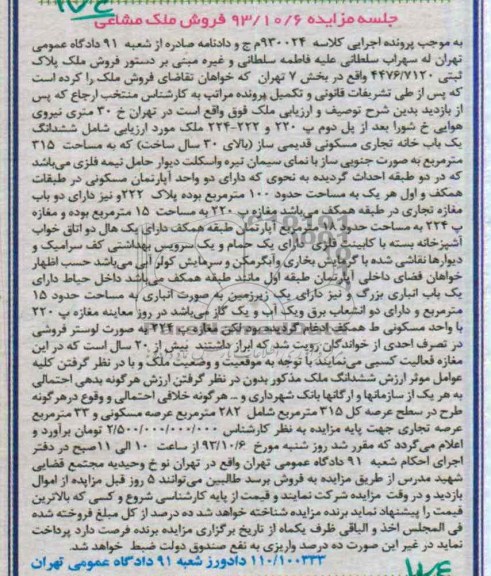 جلسه مزایده ۹۳/۱۰/۶ فروش ملک مشاعی
به موجب پرونده اجرایی کلاسه ۹۳۰۰۲۴م ج و دادنامه صادره از شعبه ۹۱ دادگاه عمومی
تهران له سهراب سلطانی علیه فاطمه سلطانی و غیره مبنی بر دستور فروش ملک پلاک
ثبتی ۴۴۷۶/۷۱۲۰ واقع در بخش ۷ تهران که خواهان تقاضای فروش ملک را کرده است
که پس از طی تشریفات قانونی و تکمیل پرونده مراتب به کارشناس منتخب ارجاع که پس
از بازدید بدین شرح توصیف و ارزیابی ملک فوق واقع است در تهران خ ۳۰ متری نیروی
هوایی خ شورا بعد از پل دوم پ ۲۲۰ و ۲۲۲-۲۲۴ ملک مورد ارزیابی شامل ششدانگ
یک باب خانه تجاری مسکونی قدیمی ساز (بالای ۳۰ سال ساخت) که به مساحت ۳۱۵
مترمربع به صورت جنوبی ساز با نمای سیمان تیره واسکلت دیوار حامل نیمه فلزی می‌باشد
که در دو طبقه احداث گردیده به نحوی که دارای دو واحد آپارتمان مسکونی در طبقات
همکف و اول هر یک به مساحت حدود ۱۰۰ مترمربع بوده پلاک ۲۲۲و نیز دارای دو باب
مغازه تجاری در طبقه همکف می‌باشد مغازه پ ۲۲۰ به مساحت ۱۵ مترمربع بوده و مغازه
پ ۲۲۴ به مساحت حدود ۱۸ مترمربع آپارتمان طبقه همکف دارای یک هال دو اتاق خواب
آشپزخانه بسته با کابینت فلزی دارای یک حمام و یک سرویس بهداشتی کف سرامیک و
دیوارها نقاشی شده با گرمایش بخاری وآبگرمکن و سرمایش کولر آبی می‌باشد حسب اظهار
خواهان فضای داخلی آپارتمان طبقه اول مانند طبقه همکف می‌باشد داخل حیاط دارای
یک باب انباری بزرگ و نیز دارای یک زیرزمین به صورت انباری به مساحت حدود ۱۵
مترمربع و دارای دو انشعاب برق ویک آب و یک گاز می‌باشد در روز معاینه مغازه پ ۲۲۰
با واحد مسکونی ط همکف ادغام گردیده بود لکن مغازه پ ۲۲۴ به صورت لوستر فروشی
در تصرف احدی از خواندگان رویت شد که ابراز داشتند بیش از ۲۰ سال است که در این
مغازه فعالیت کسبی می‌نمایند با توجه به موقعیت و وضعیت ملک و با در نظر گرفتن کلیه
عوامل موثر ارزش ششدانگ ملک مذکور بدون در نظر گرفتن ارزش هرگونه بدهی احتمالی
به هر یک از سازمانها و ارگانها بانک شهرداری و ... هرگونه خلافی احتمالی و وقوع درهرگونه
طرح در سطح عرصه کل ۳۱۵ مترمربع شامل ۲۸۲ مترمربع عرصه مسکونی و ۳۳ مترمربع
عرصه تجاری جهت پایه مزایده به نظر کارشناس ۲/۵۰۰/۰۰۰/۰۰۰/۰۰۰ تومان برآورد و
اعلام می‌گردد که مقرر شد روز شنبه مورخ ۹۳/۱۰/۶ از ساعت ۱۰ الی ۱۱صبح در دفتر
اجرای احکام شعبه ۹۱ دادگاه عمومی تهران واقع در تهران نو خ وحیدیه مجتمع قضایی
شهید مدرس از طریق مزایده به فروش برسد طالبین می‌توانند ۵ روز قبل مزایده از اموال
بازدید و در وقت مزایده شرکت نمایند و قیمت از پایه کارشناسی شروع و کسی که بالاترین
قیمت را پیشنهاد نماید برنده مزایده شناخته خواهد شد ده درصد از کل مبلغ فروخته شده
فی المجلس اخذ و الباقی ظرف یکماه از تاریخ برگزاری مزایده برنده فرصت دارد پرداخت
نماید در غیر این صورت ده درصد واریزی به نفع صندوق دولت ضبط خواهد شد.
۱۱۰/۱۰۰۳۳۳ دادورز شعبه ۹۱ دادگاه عمومی تهران